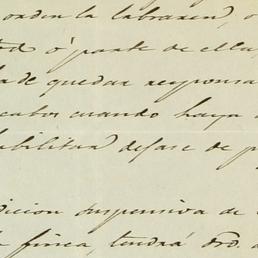 orden la labraren, o
tod ó parte de ella,
ha de quedar responsa
cabos cuando haya
habilitar dejase de p
dicion suspensiva de
la finca, tendrá drō.